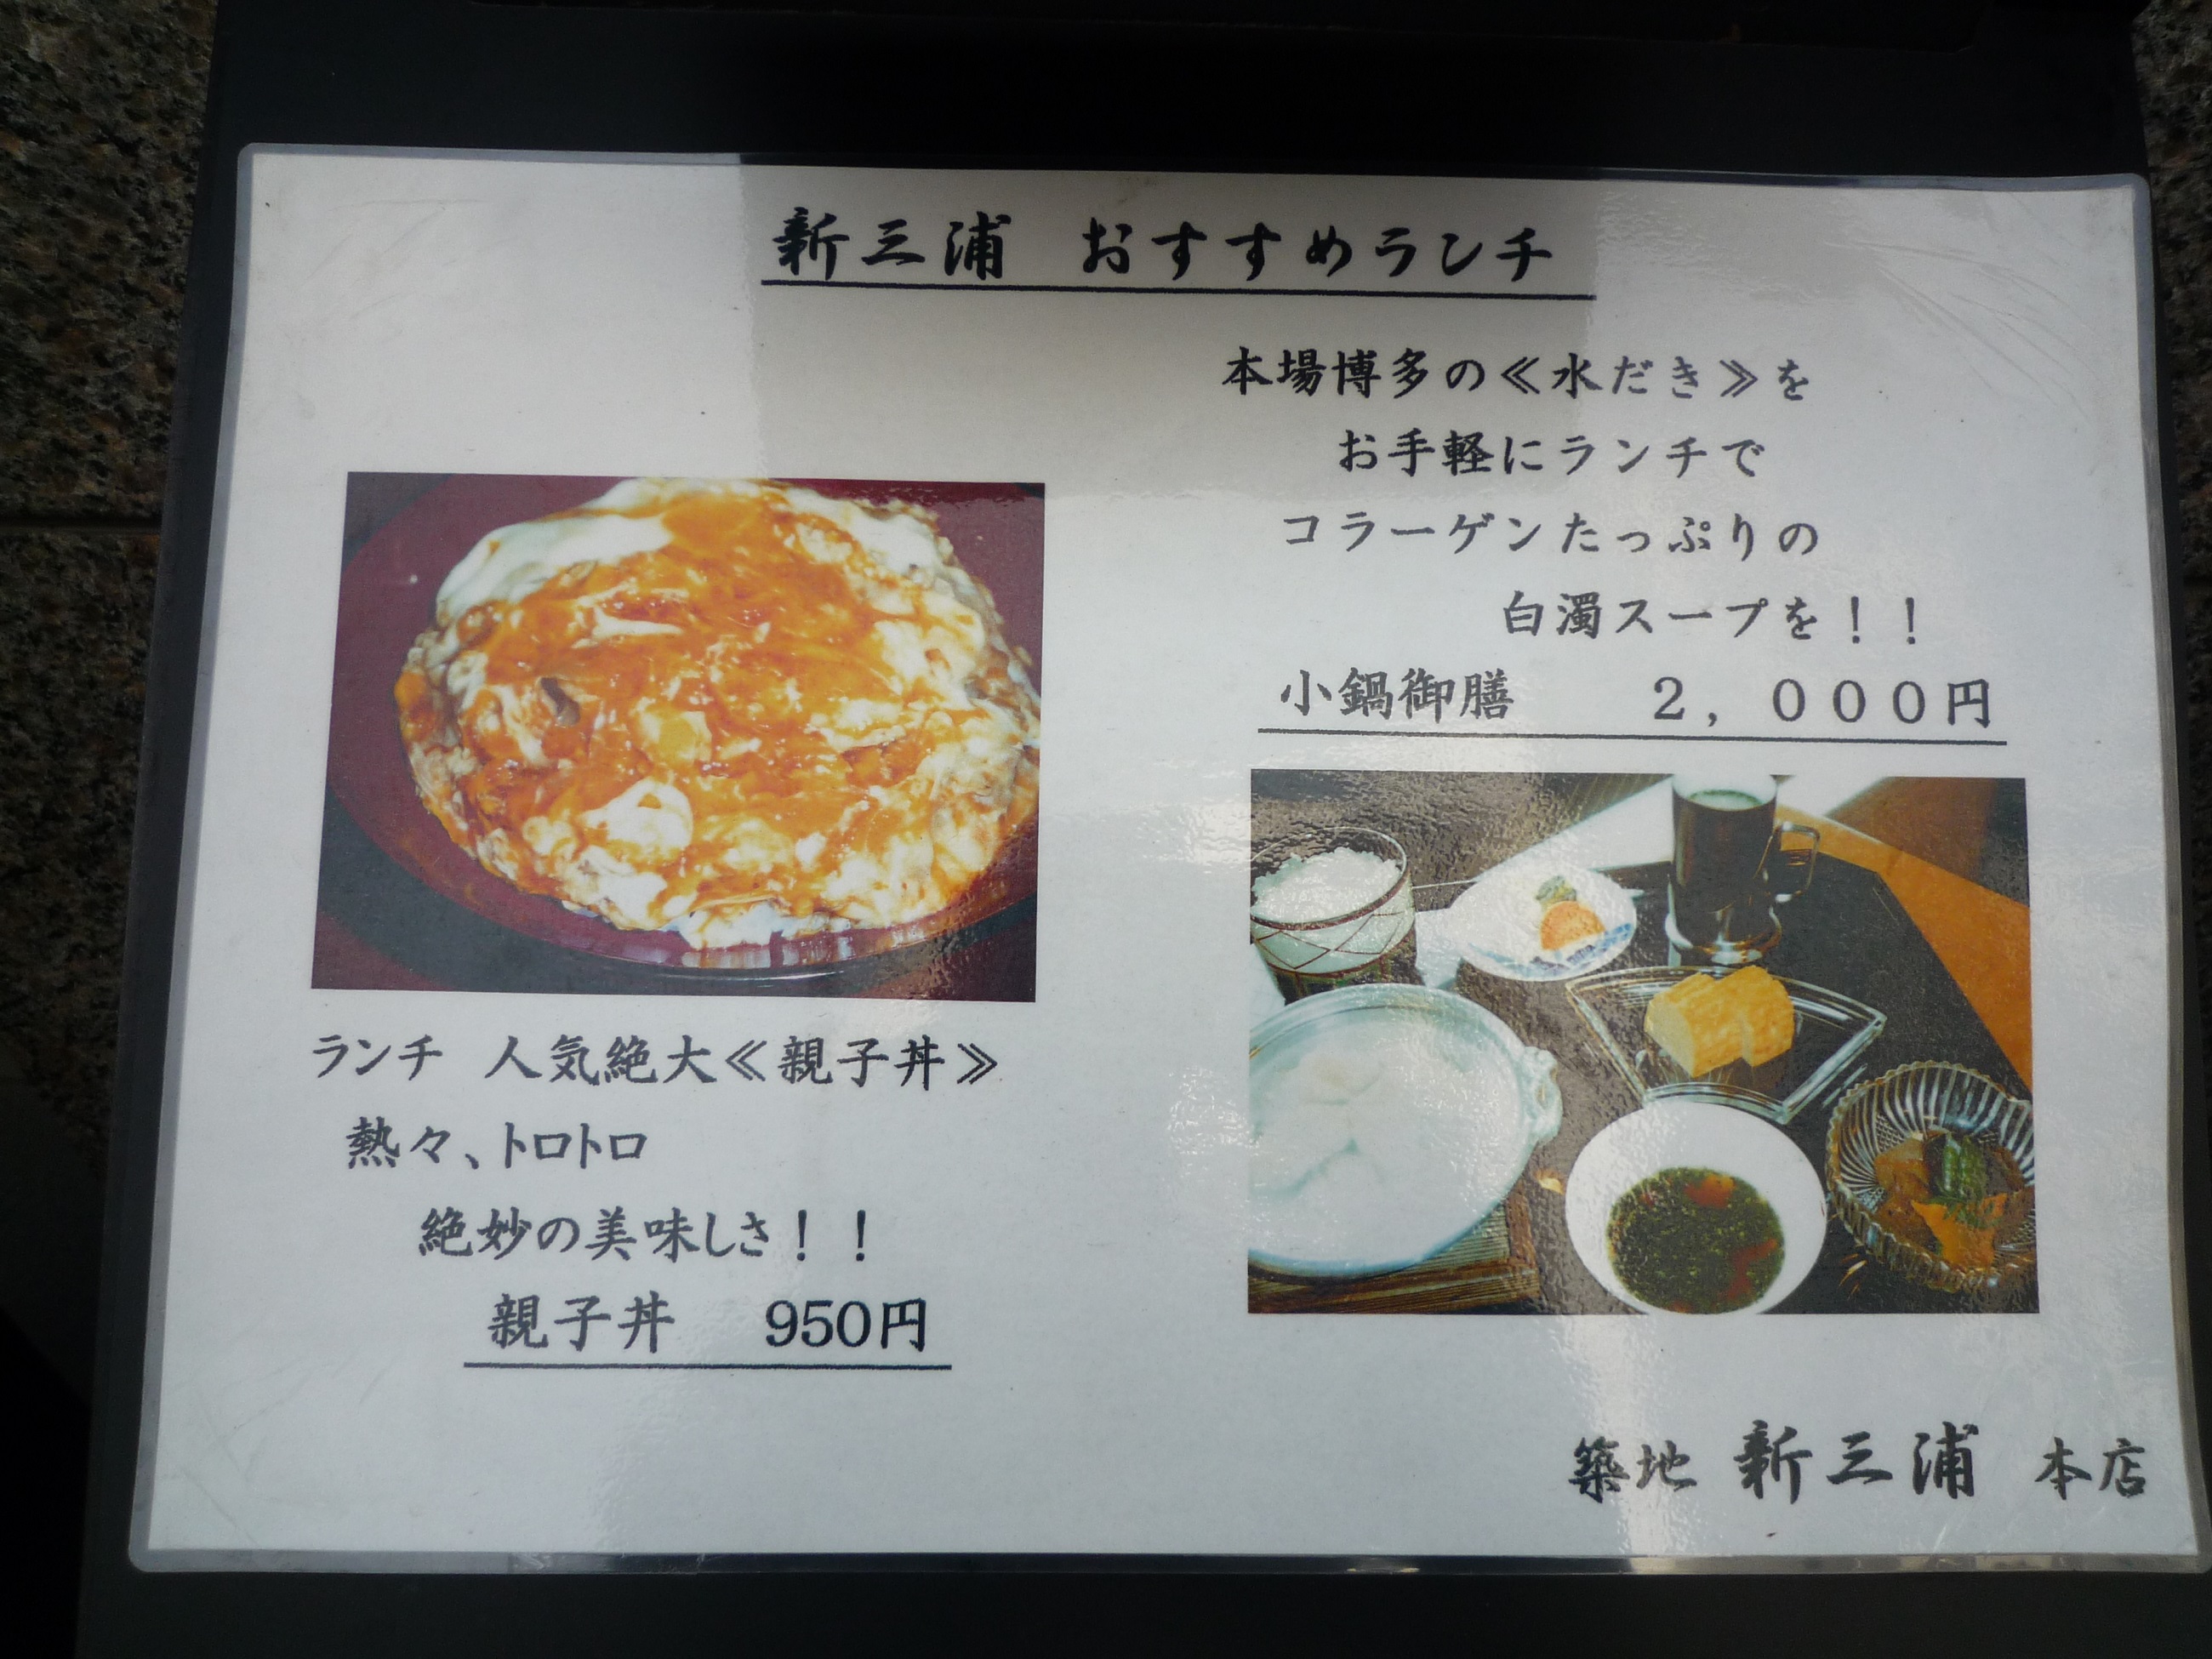 新三浦 おすすめランチ
本場博多の≪水だき≫を
お手軽にランチで
コラーゲンたっぷりの
白濁スープを！！
小鍋御膳 ２，０００円
ランチ 人気絶大≪親子丼≫
熱々、トロトロ
絶妙の美味しさ！！
親子丼 950円
築地 新三浦 本店